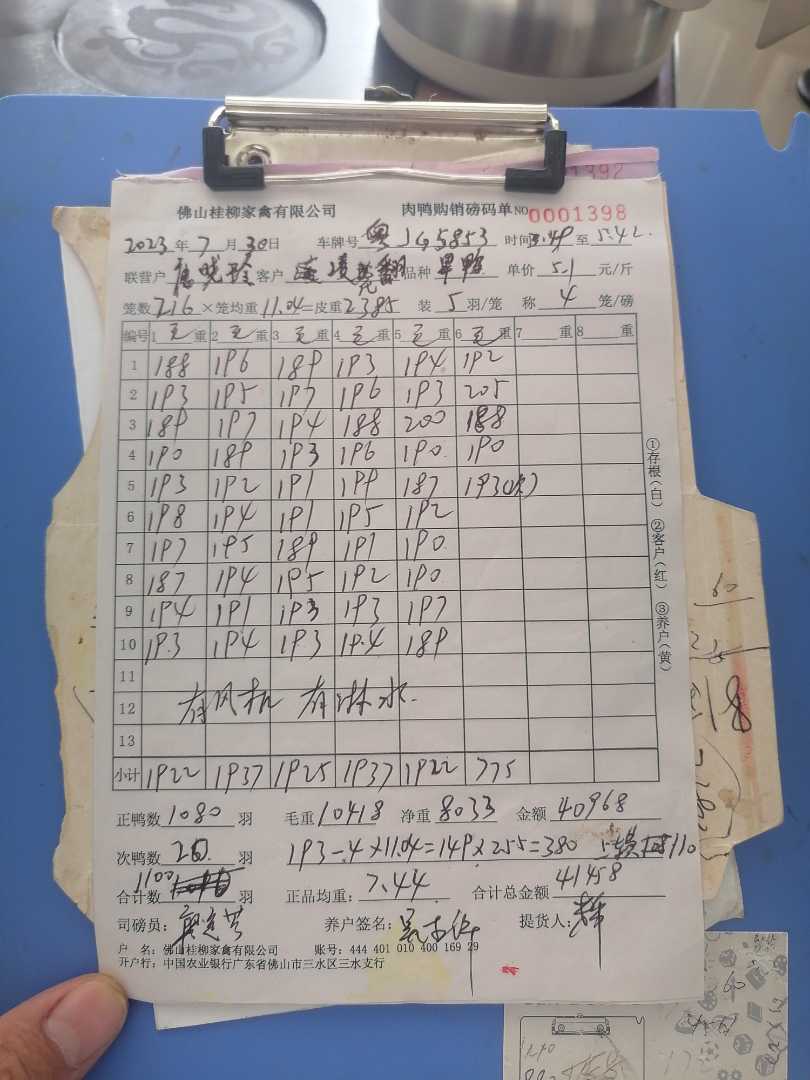 佛山桂柳家禽有限公司 肉鸭购销磅码单 NO 0001398
2023年7月30日 车牌号 粤J65853 时间3.49至5.42
联营户 客户 品种 单价5.1元/斤
笼数216×笼均重11.04=皮重2385 装5羽/笼 称4笼/磅
编号 1毛重 2毛重 3毛重 4毛重 5毛重 6毛重 7重 8重
1 188 196 189 193 194 192
2 193 195 197 196 193 205
3 189 197 194 188 200 188
4 190 189 193 196 190 190
5 193 192 191 199 187 193(次)
6 198 194 191 195 192
7 197 195 189 191 190
8 187 194 195 192 190
9 194 191 193 193 197
10 193 194 193 194 189
11
12 有风机 有淋水
13
小计 1922 1937 1925 1937 1922 775
正鸭数1080羽 毛重10418 净重8033 金额40968
次鸭数20羽 193-4×11.04=149×2.55=380
合计数1100羽 正品均重:7.44 合计总金额41458
司磅员: 养户签名: 提货人:
户 名:佛山桂柳家禽有限公司 账号:444 401 010 400 169 29
开户行:中国农业银行广东省佛山市三水区三水支行
①存根(白) ②客户(红) ③养户(黄)